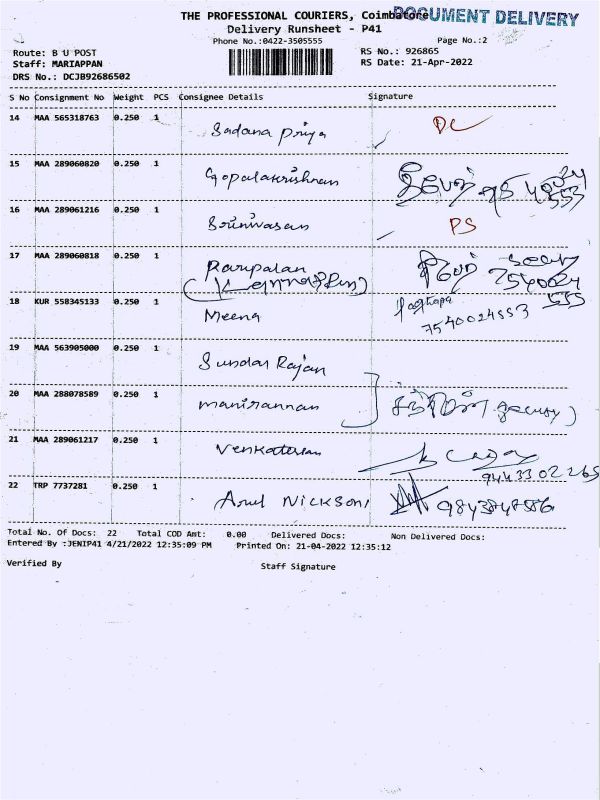 THE PROFESSIONAL COURIERS, Coimbatore
DOCUMENT DELIVERY
Delivery Runsheet - P41
Phone No.:0422-3505555
Page No.:2
Route: B U POST
RS No.: 926865
Staff: MARIAPPAN
RS Date: 21-Apr-2022
DRS No.: DCJB92686502
S No Consignment No Weight PCS Consignee Details Signature
14 MAA 565318763 0.250 1 Sadana priya DC
15 MAA 289060820 0.250 1 Gopalakrishnan
16 MAA 289061216 0.250 1 Srinivasan PS
17 MAA 289060818 0.250 1
18 KUR 558345133 0.250 1 Meena 7540024553
19 MAA 563905000 0.250 1 Sundar Rajan
20 MAA 288078589 0.250 1 manirannan
21 MAA 289061217 0.250 1 Venkatesan 9443302265
22 TRP 7737281 0.250 1 Arul Nickson
Total No. Of Docs: 22 Total COD Amt: 0.00 Delivered Docs: Non Delivered Docs:
Entered By :JENIP41 4/21/2022 12:35:09 PM Printed On: 21-04-2022 12:35:12
Verified By Staff Signature